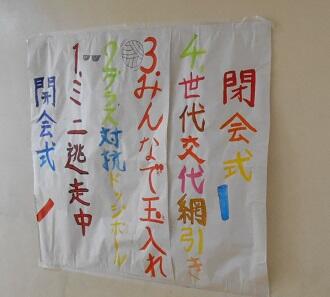 開会式
1.ミニ逃走中
2.クラス対抗ドッジボール
3.みんなで玉入れ
4.世代交代綱引き
閉会式